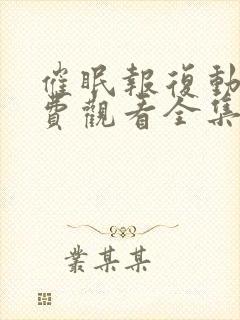 催眠報復動
費觀看全集
叢某某